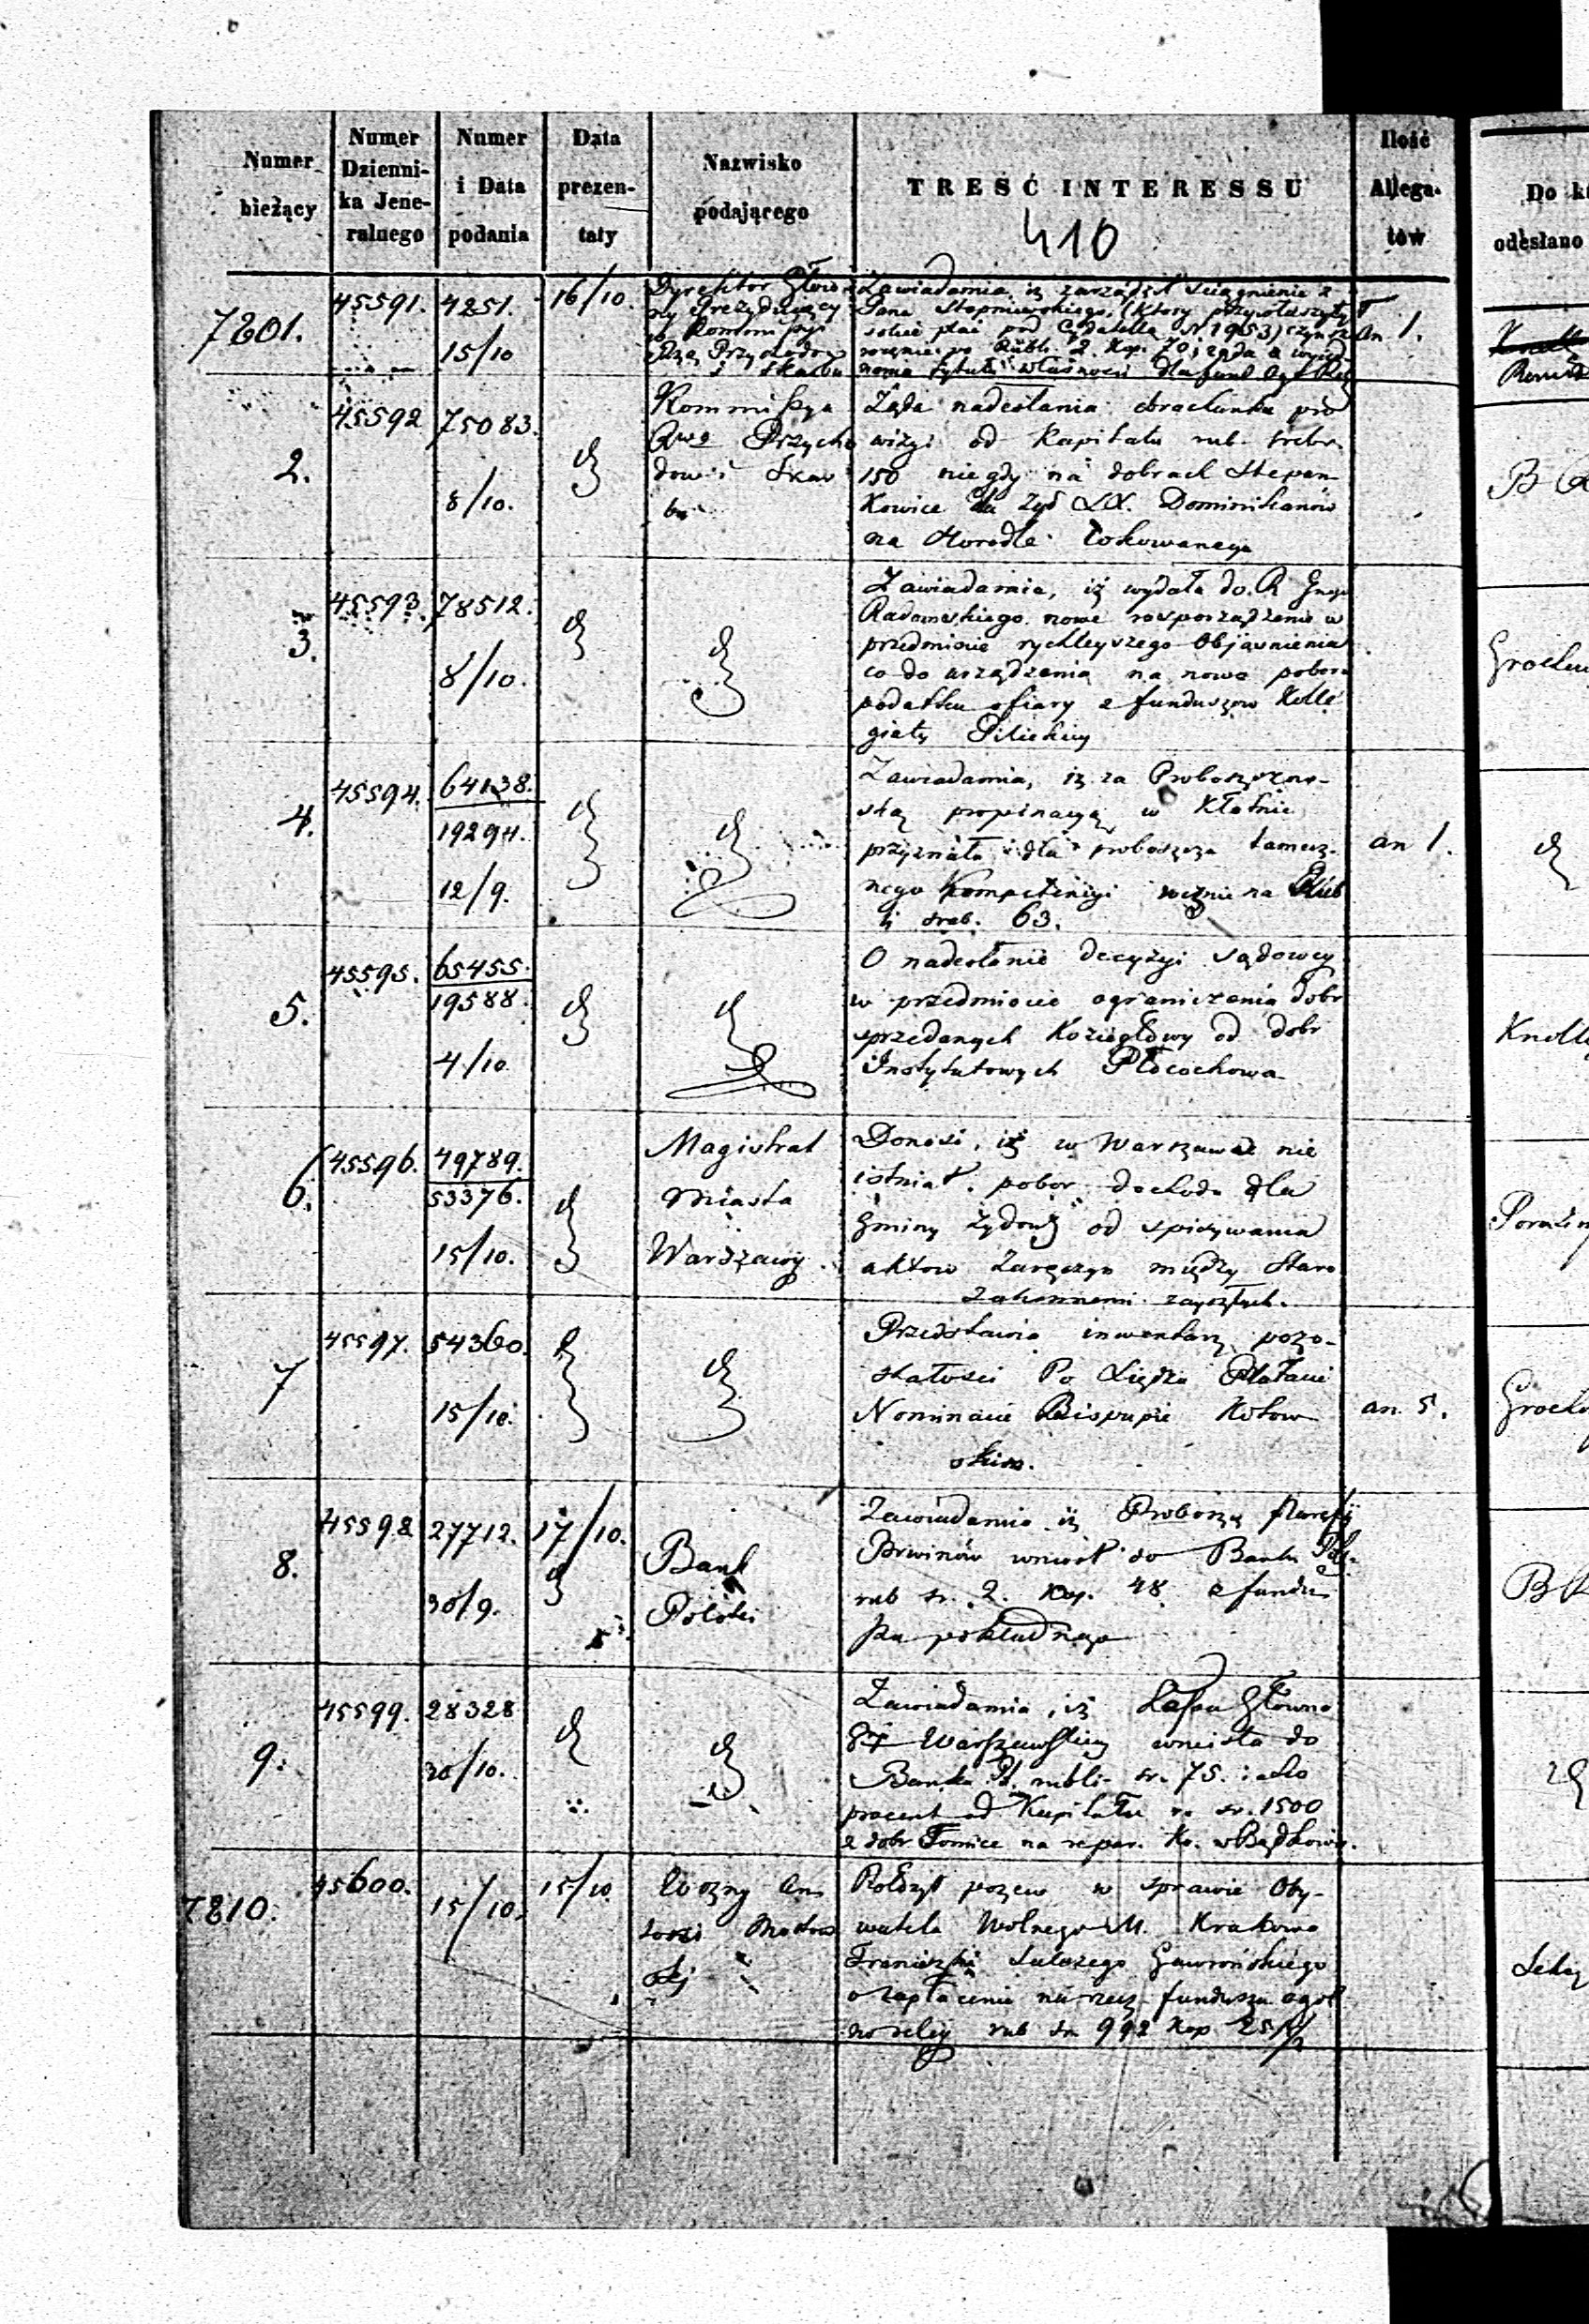 Numer bieżący
Numer Dzienni- ka Jene- ralnego
Numer i Data podania
Data prezen- taty
Nazwisko podającego
TREŚĆ INTERESSU
410
Ilość Allega- tów
Do
odesłano
7801.
45591.
4251.
15/10
16/10.
Dyrektor Głów
ny Prezydujący
w Kommissyi
Przychodów
i Skarbu
Zawiadamia iż zarządził ściągnienie z
Pana
sobie plac pod Cytadellą N 1953) czyn
rocznie po Rubli 2. Kop. 70; żąda
an 1.
2.
45592
75083.
8/10.
Kommissya
Rzą Przycho
dów i Skar
bu
Żąda nadesłania obrachunku pro
wizyi od Kapitału rub. srebr.
150 niegdy na dobrach Stepan
kowice dla Zgr XX. Dominikanów
na Horodle lokowanego
B
3.
45593.
78512.
8/10.
Zawiadamia, iż wydała do R Gugo
Radomskiego nowe rozporządzenie w
przedmiocie rychleyszego objaśnienia
co do urządzenia na nowo poboru
podatku ofiary z funduszow Kolle
giaty Pilickiey
4.
45594.
64138.
19294.
12/9.
Zawiadamia, iż za Proboszczow-
ską propinacyą w Kłotnie
przyznała dla proboszcza tamecz-
nego Kompetencyi rocznie na Rub
li sreb. 63.
an 1.
5.
45595.
65455.
19588.
4/10.
O nadesłanie decyzyi sądowey
w przedmiocie ograniczenia dobr
sprzedanych Koziegłowy od dobr
Instytutowych Płocochowa
6.
45596.
49789.
53376.
15/10.
Magistrat
Miasta
Warszawy.
Donosi, iż w Warszawie nie
istniał pobor dochodu dla
Gminy Żydow. od spisywania
aktow Zaręczyn między Staro
zakonnemi zaszłych.
7
45597.
54360.
15/10.
Przedstawia inwentarz pozo-
stałości Po Xiędzu Prałacie
Nominacie Biskupie Kotow
skim.
an. 5.
8.
45598
27712.
30/9.
17/10.
Bank
Polski
Zawiadamia iż Proboszcz Parafij
Brwinów wniosł do Banku Pols.
rub sr. 2. kop. 48 z fundu
szu pokładnego
9.
45599.
28328
30/10.
Zawiadamia, iż Kassa Główna
Warszawskiey wniosła do
Banku P. rubli sr. 75. iako
procent od Kapitału r. sr. 1500
z dobr Tomice na repar. Ko. w Będkowie.
7810.
45600.
15/10.
15/10.
Woźny An
toni
Położył pozew w sprawie Oby-
watela Wolnego M. Krakowa
Franciszka Salezego Gawrońskiego
o zapłacenie na rzecz funduszu ogól
no relig rub sr 992 kop 25 1/2